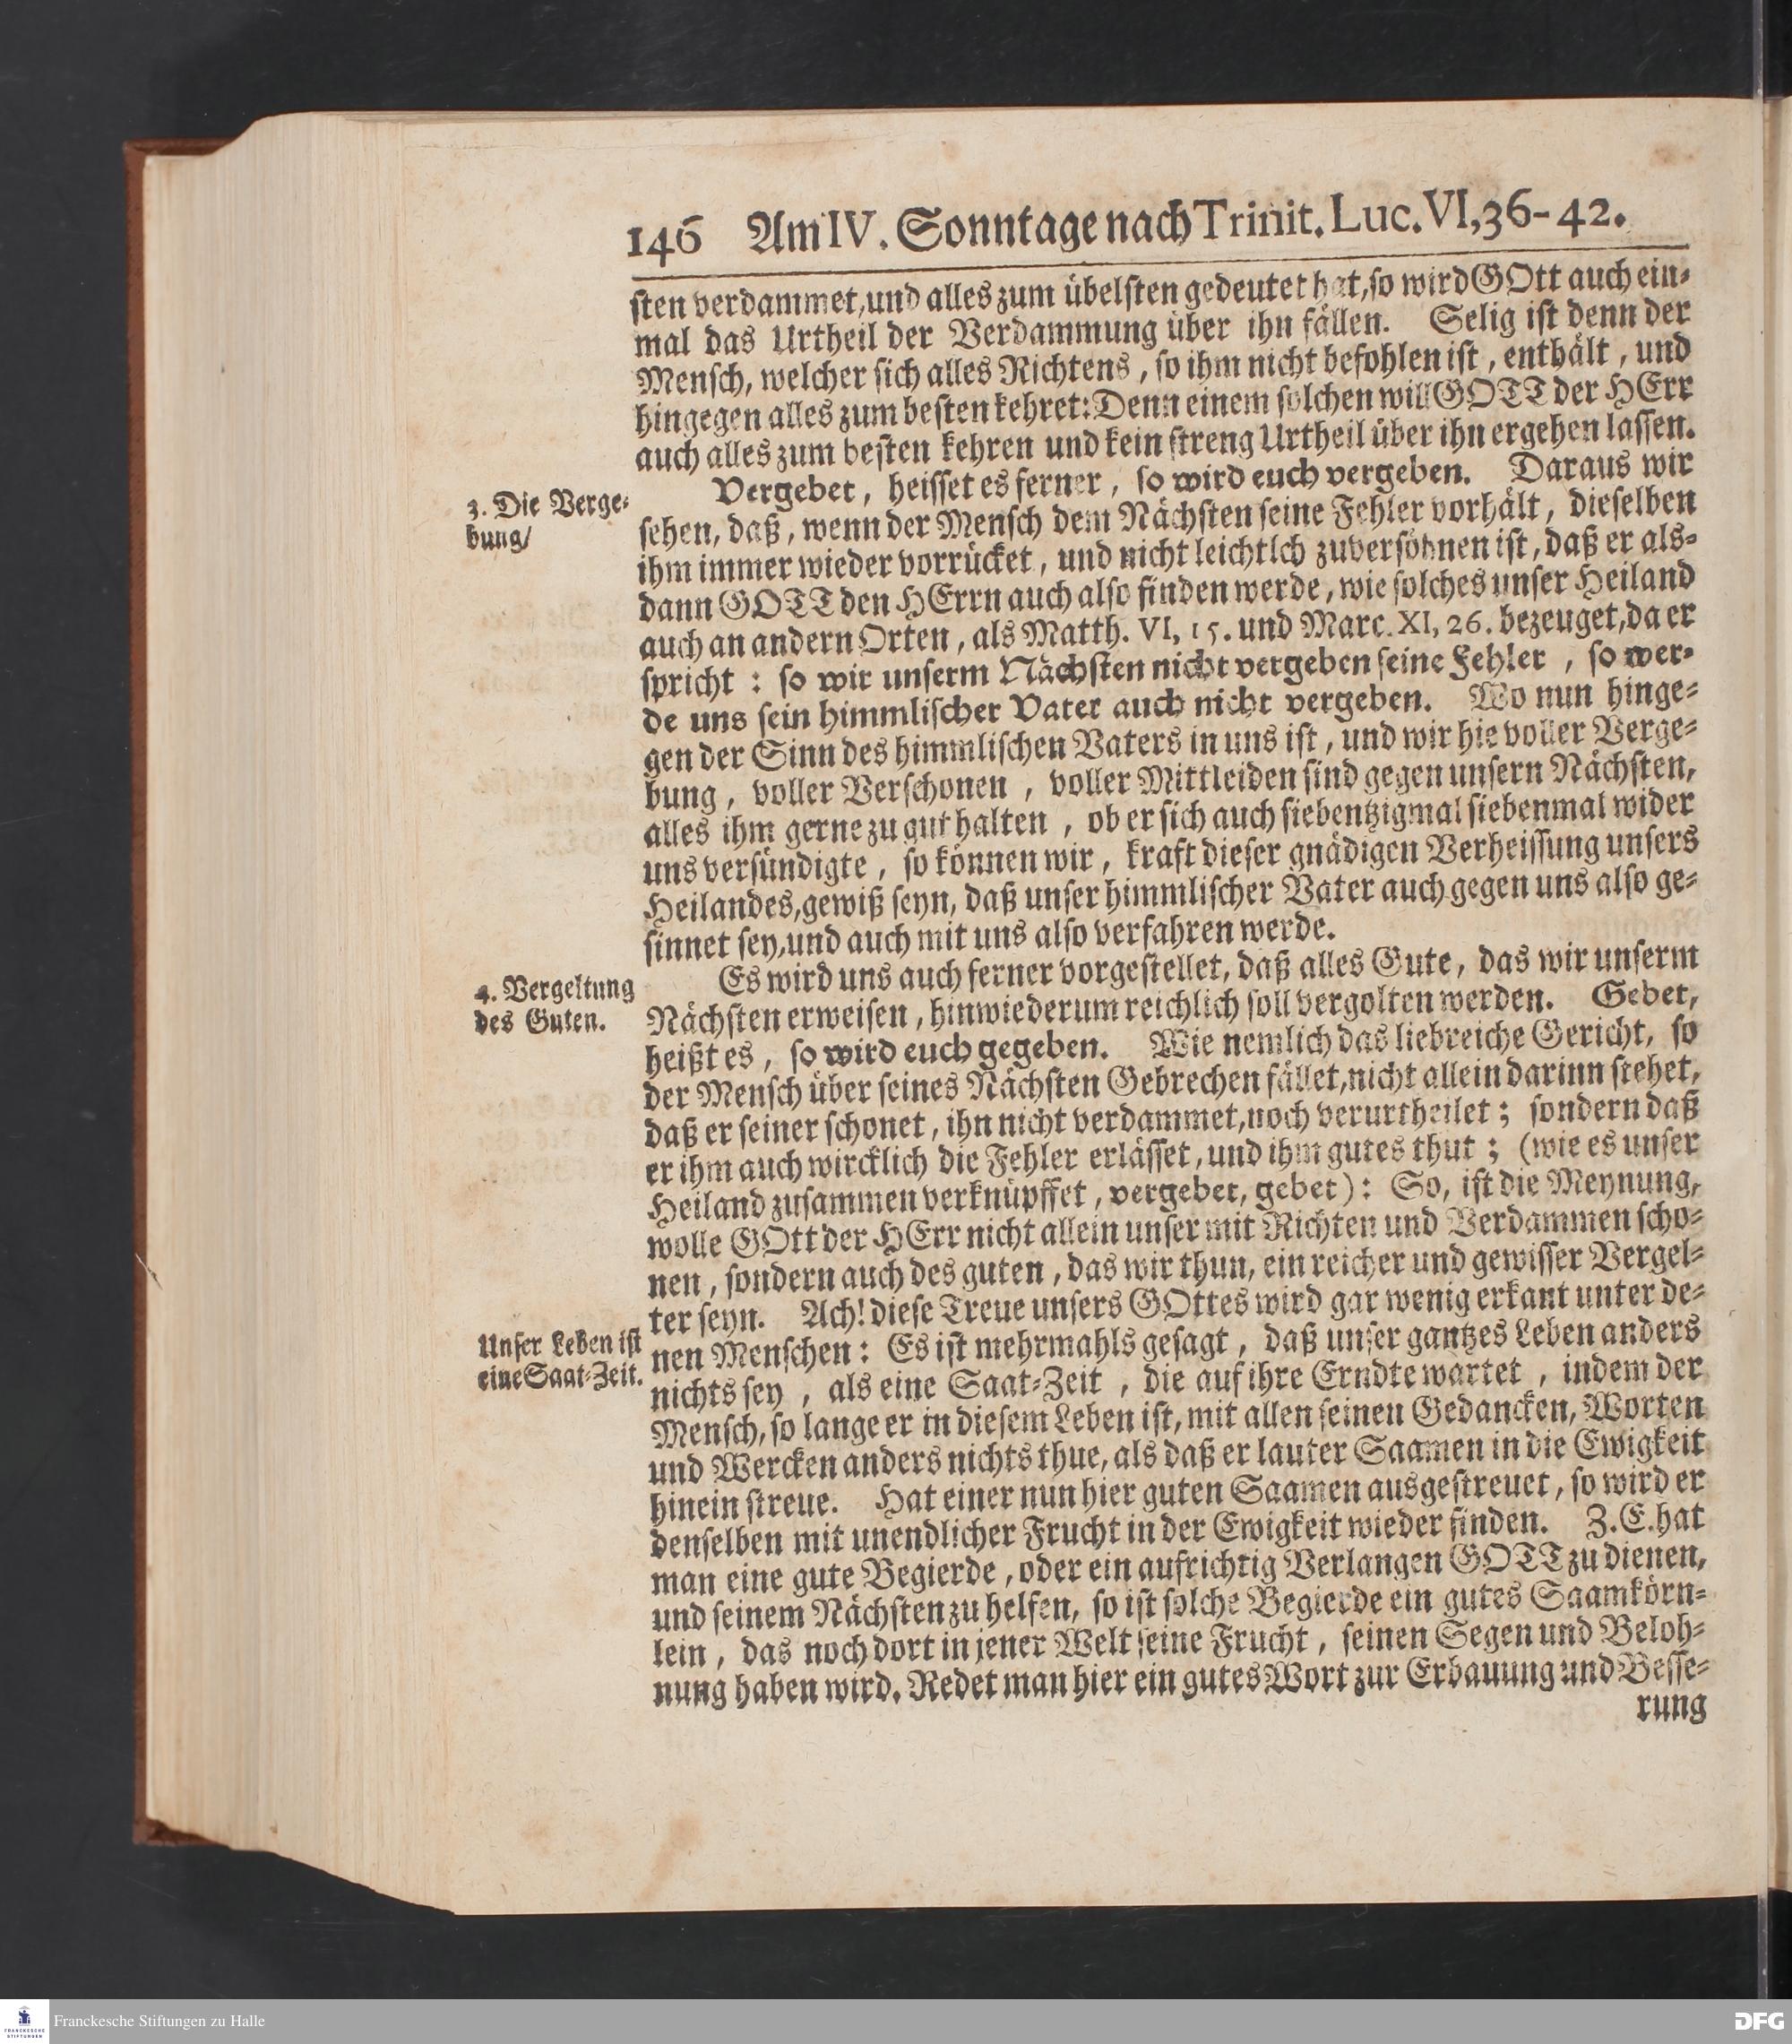 146 Am IV. Sonntage nach Trinit. Luc. VI, 36-42.
sten verdammet, und alles zum übelsten gedeutet hat, so wird GOtt auch ein-
mal das Urtheil der Verdammung über ihn fällen. Selig ist denn der
Mensch, welcher sich alles Richtens, so ihm nicht befohlen ist, enthält, und
hingegen alles zum besten kehret: Denn einem solchen will GOTT der HErr
auch alles zum besten kehren und kein streng Urtheil über ihn ergehen lassen.
3. Die Verge-
bung/
Vergebet, heisset es ferner, so wird euch vergeben. Daraus wir
sehen, daß, wenn der Mensch dem Nächsten seine Fehler vorhält, dieselben
ihm immer wieder vorrücket, und nicht leichtlch zuversöhnen ist, daß er als-
dann GOTT den HErrn auch also finden werde, wie solches unser Heiland
auch an andern Orten, als Matth. VI, 15. und Marc. XI, 26. bezeuget, da er
spricht: so wir unserm Nächsten nicht vergeben seine Fehler, so wer-
de uns sein himmlischer Vater auch nicht vergeben. Wo nun hinge-
gen der Sinn des himmlischen Vaters in uns ist, und wir hie voller Verge-
bung, voller Verschonen, voller Mittleiden sind gegen unsern Nächsten,
alles ihm gerne zu gut halten, ob er sich auch siebentzigmal siebenmal wider
uns versündigte, so können wir, kraft dieser gnädigen Verheissung unsers
Heilandes, gewiß seyn, daß unser himmlischer Vater auch gegen uns also ge-
sinnet sey, und auch mit uns also verfahren werde.
4. Vergeltung
des Guten.
Es wird uns auch ferner vorgestellet, daß alles Gute, das wir unserm
Nächsten erweisen, hinwiederum reichlich soll vergolten werden. Gebet,
heißt es, so wird euch gegeben. Wie nemlich das liebreiche Gericht, so
der Mensch über seines Nächsten Gebrechen fället, nicht allein darinn stehet,
daß er seiner schonet, ihn nicht verdammet, noch verurtheilet; sondern daß
er ihm auch wircklich die Fehler erlässet, und ihm gutes thut; (wie es unser
Heiland zusammen verknüpffet, vergebet, gebet): So, ist die Meynung,
wolle GOtt der HErr nicht allein unser mit Richten und Verdammen scho-
nen, sondern auch des guten, das wir thun, ein reicher und gewisser Vergel-
ter seyn. Ach! diese Treue unsers GOttes wird gar wenig erkant unter de-
Unser Leben ist
eine Saat-Zeit.
nen Menschen: Es ist mehrmahls gesagt, daß unser gantzes Leben anders
nichts sey, als eine Saat-Zeit, die auf ihre Erndte wartet, indem der
Mensch, so lange er in diesem Leben ist, mit allen seinen Gedancken, Worten
und Wercken anders nichts thue, als daß er lauter Saamen in die Ewigkeit
hinein streue. Hat einer nun hier guten Saamen ausgestreuet, so wird er
denselben mit unendlicher Frucht in der Ewigkeit wieder finden. Z. E. hat
man eine gute Begierde, oder ein aufrichtig Verlangen GOTT zu dienen,
und seinem Nächsten zu helfen, so ist solche Begierde ein gutes Saamkörn-
lein, das noch dort in jener Welt seine Frucht, seinen Segen und Beloh-
nung haben wird. Redet man hier ein gutes Wort zur Erbauung und Besse-
rung
FRANCKESCHE
STIFTUNGEN
Franckesche Stiftungen zu Halle
DFG